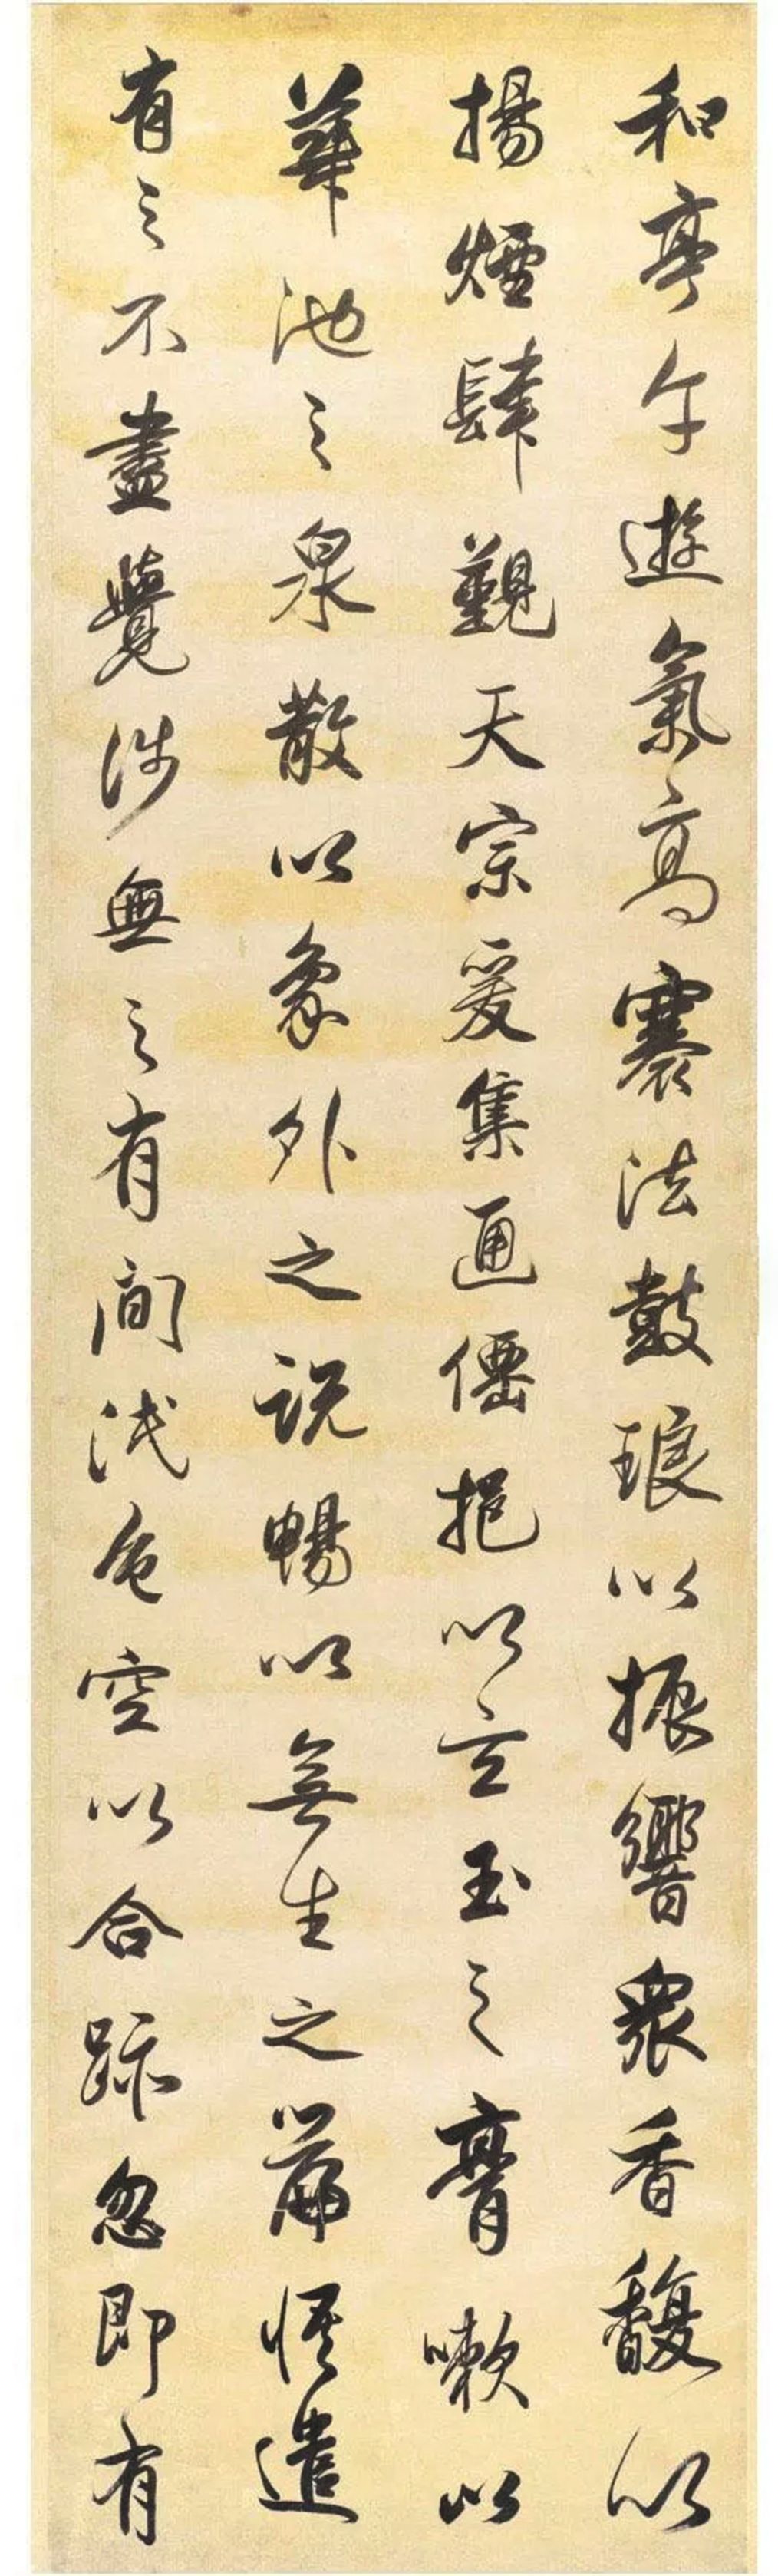 和亭午遊氣高褰法鼓琅以振響眾香馥以
揚煙肆覲天宗爰集通僊挹以玄玉之膏嗽以
華池之泉散以象外之説暢以無生之篇悟遣
有之不盡覺涉無之有間泯色空以合跡忽即有